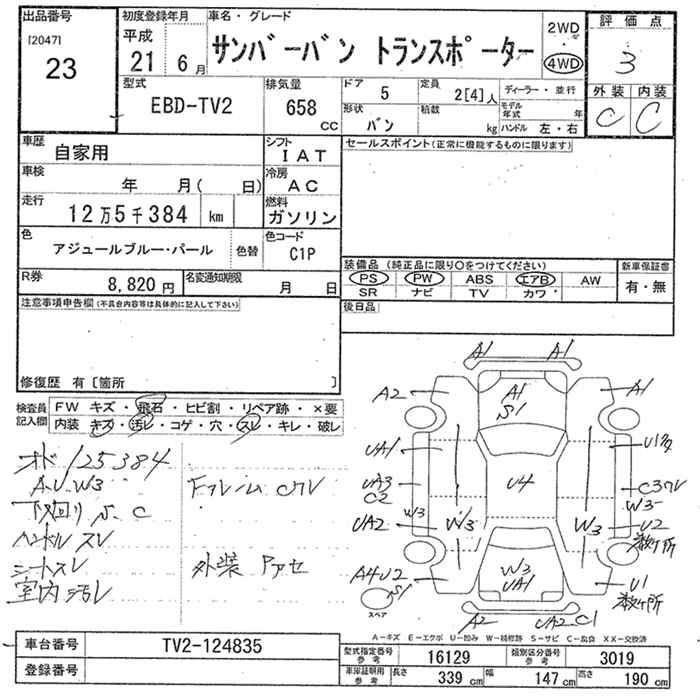 出品番号
[2047]
23
初度登録年月
平成
21 6月
車名・グレード
サンバーバン トランスポーター
2WD
・
4WD
評価点
3
外装 内装
C C
型式
EBD-TV2
排気量
658
CC
ドア
5
定員
2[4]人
形状
バン
積載
kg
ディーラー・並行
モデル年式 年
ハンドル 左・右
車歴
自家用
シフト
IAT
車検
年 月( 日)
冷房
AC
走行
12万5千384 km
燃料
ガソリン
色
アジュールブルー・パール
色替
色コード
C1P
R券
8,820円
名変通知期限
月 日
セールスポイント(正常に機能するものに限ります)
装備品(純正品に限り○をつけてください)
PS PW ABS エアB AW
SR ナビ TV カワ
新車保証書
有・無
後日品
注意事項申告欄(不具合内容等は具体的に記入して下さい)
修復歴 有〔箇所 〕
検査員記入欄
FW キズ・飛石・ヒビ割・リペア跡・×要
内装 キズ・汚レ・コゲ・穴・スレ・キレ・破レ
オド 125384
A.U.W3
下回り S.C
ハンドルスレ
シートスレ
室内汚レ
Fフレーム
外装
A1 A1
A2 A1 S1 A1
UA1
UA3
C2
W3
UA2
W3
U4
W3
W3
U2
数ヶ所
A4U2
S1
W3
UA1
U1
数ヶ所
A2 UA2 C1
スペア
A-キズ E-エクボ U-凹み W-補修跡 S-サビ C-腐食 XX-交換済
車台番号
TV2-124835
登録番号
型式指定番号 参考
16129
類別区分番号 参考
3019
車庫証明用 参考
長さ 339 cm
幅 147 cm
高さ 190 cm